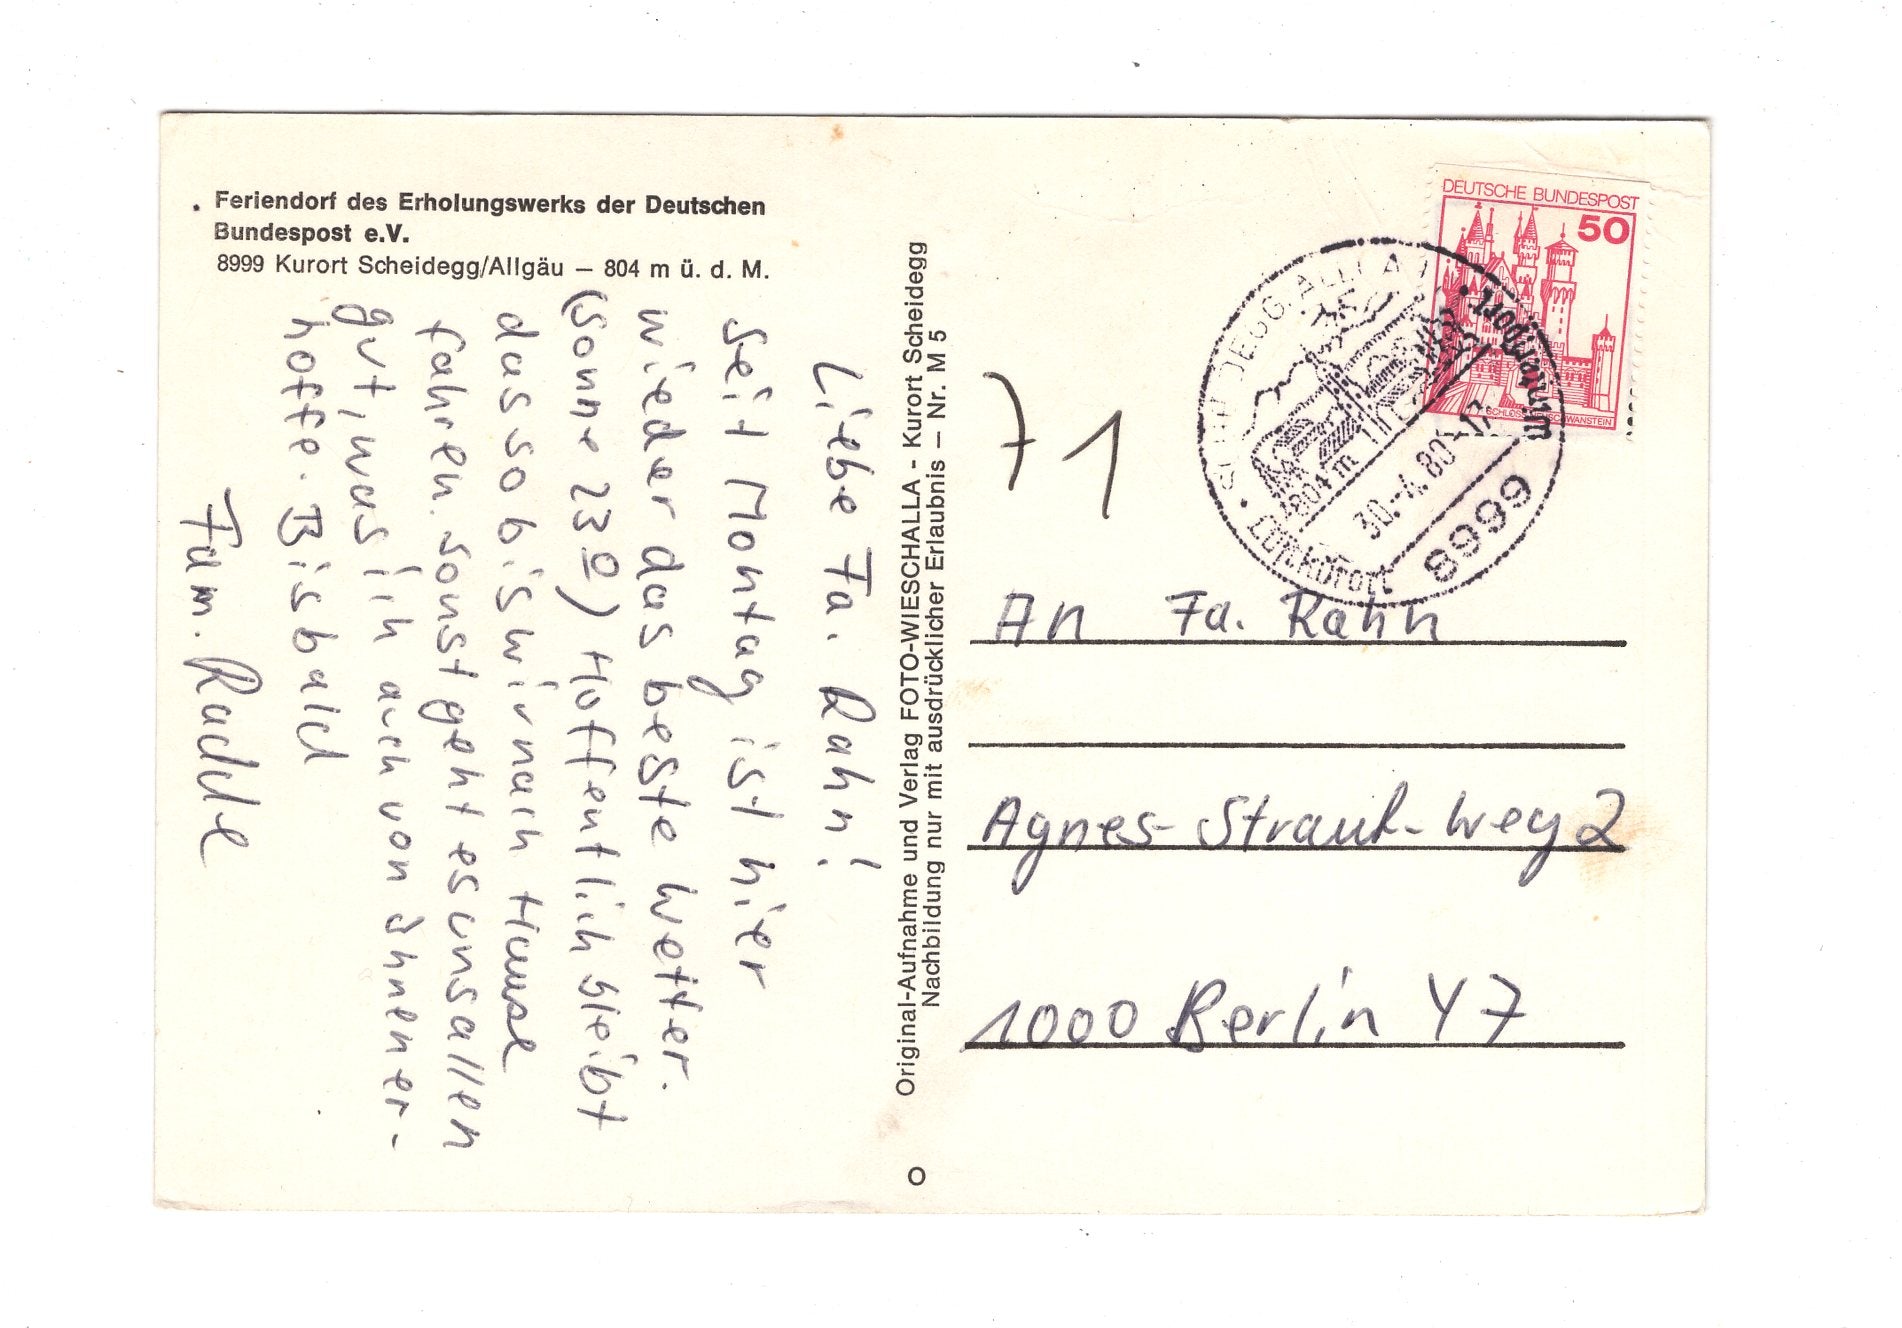 Feriendorf des Erholungswerks der Deutschen
Bundespost e.V.
8999 Kurort Scheidegg/Allgäu – 804 m ü. d. M.
Liebe Fa. Rahn!
Seit Montag ist hier
wieder das beste Wetter.
(Sonne 23º) Hoffentlich bleibt
das so bis wir nach Hause
fahren. Sonst geht es uns allen
gut, was ich auch von ihnen er-
hoffe. Bis bald
Fam. Radtke
Original-Aufnahme und Verlag FOTO-WIESCHALLA - Kurort Scheidegg
Nachbildung nur mit ausdrücklicher Erlaubnis – Nr. M 5
O
71
DEUTSCHE BUNDESPOST
50
SCHLOSS NEUSCHWANSTEIN
SCHEIDEGG, ALLGÄU
Wintersport
804 m
30.-4.80-17
8999
Luftkurort
An Fa. Rahn
Agnes-Straub-Weg 2
1000 Berlin 47